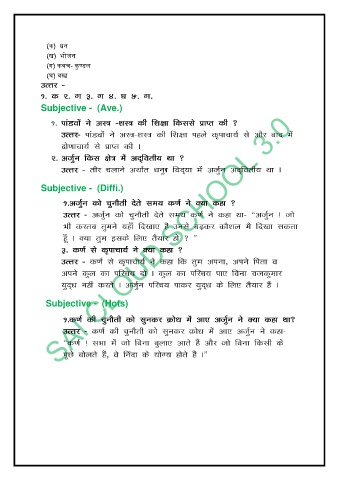 (क) धन
(ख) भोजन
(ग) कवच- कुण्डल
(घ) वस्त्र
उत्तर -
१. क २. ग ३. ग ४. घ ५. ग.
Subjective - (Ave.)
१. पांडवों ने अस्त्र -शस्त्र की शिक्षा किससे प्राप्त की ?
उत्तर- पांडवों ने अस्त्र-शस्त्र की शिक्षा पहले कृपाचार्य से और बाद में
द्रोणाचार्य से प्राप्त की ।
२. अर्जुन किस क्षेत्र में अद्वितीय था ?
उत्तर - तीर चलाने अर्थात धनुर विद्या में अर्जुन अद्वितीय था ।
Subjective - (Diffi.)
१.अर्जुन को चुनौती देते समय कर्ण ने क्या कहा ?
उत्तर - अर्जुन को चुनौती देते समय कर्ण ने कहा था- “अर्जुन ! जो
भी करतब तुमने यहाँ दिखाए हैं उनसे बढ़कर कौशल मैं दिखा सकता
हूँ । क्या तुम इसके लिए तैयार हो ? ”
३. कर्ण से कृपाचार्य ने क्या कहा ?
उत्तर - कर्ण से कृपाचार्य ने कहा कि तुम अपना, अपने पिता व
अपने कुल का परिचय दो । कुल का परिचय पाए बिना राजकुमार
युद्ध नहीं करते । अर्जुन परिचय पाकर युद्ध के लिए तैयार है ।
Subjective - (Hots)
१.कर्ण की चुनौती को सुनकर क्रोध में आए अर्जुन ने क्या कहा था?
उत्तर - कर्ण की चुनौती को सुनकर क्रोध में आए अर्जुन ने कहा-
“कर्ण ! सभा में जो बिना बुलाए आते हैं और जो बिना किसी के
पूछे बोलते हैं, वे निंदा के योग्य होते हैं ।”
SAI CLOUD SCHOOL 3.0